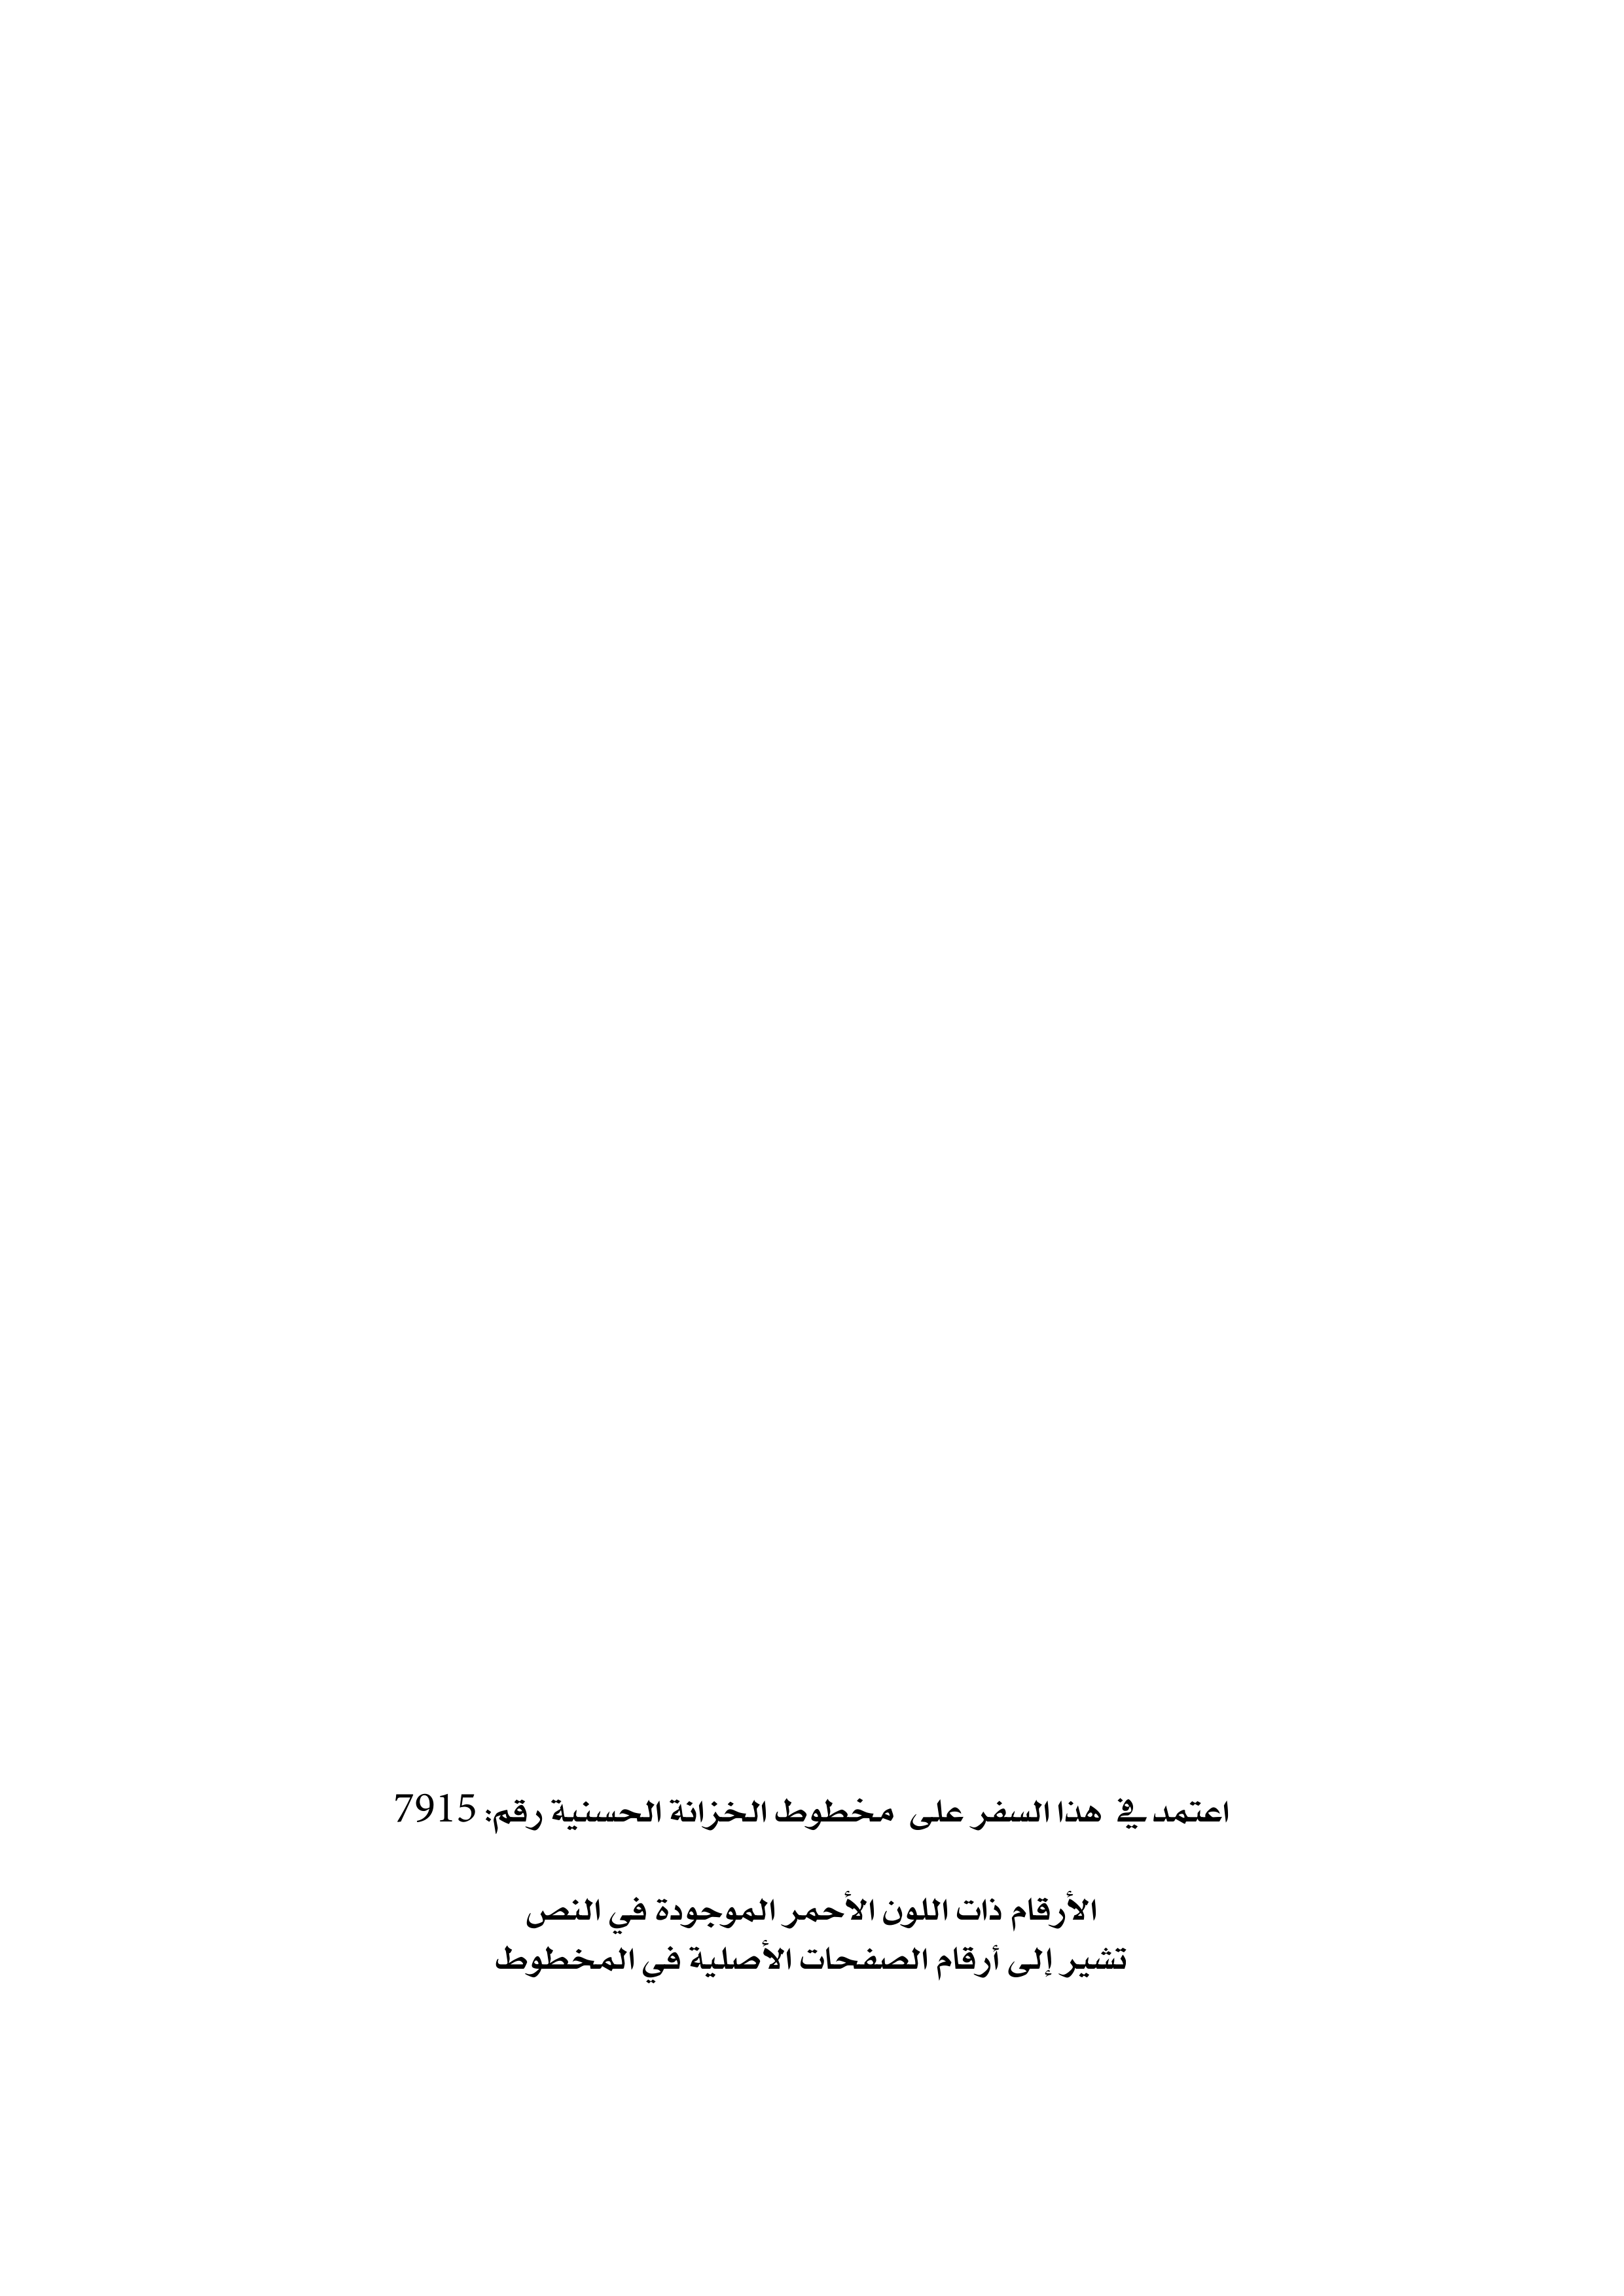 اعتمد في هذا السفر على مخطوط الخزانة الحسنية رقم: 7915
الأرقام ذات اللون الأحمر الموجودة في النص
تشير إلى أرقام الصفحات الأصلية في المخطوط